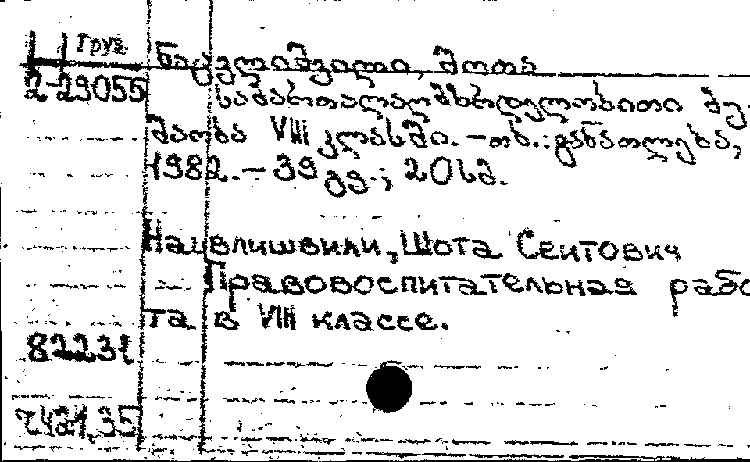 Груз
ნაცვლიშვილი, შოთა
2-29055
სამართალაღმზრდელობითი მუ-
შაობა VIII კლასში. – თბ.: განათლება,
1982. – 39 გვ.; 20 სმ.
Нацвлишвили, Шота Сеитович
Правовоспитательная рабо
та в VIII классе.
82231